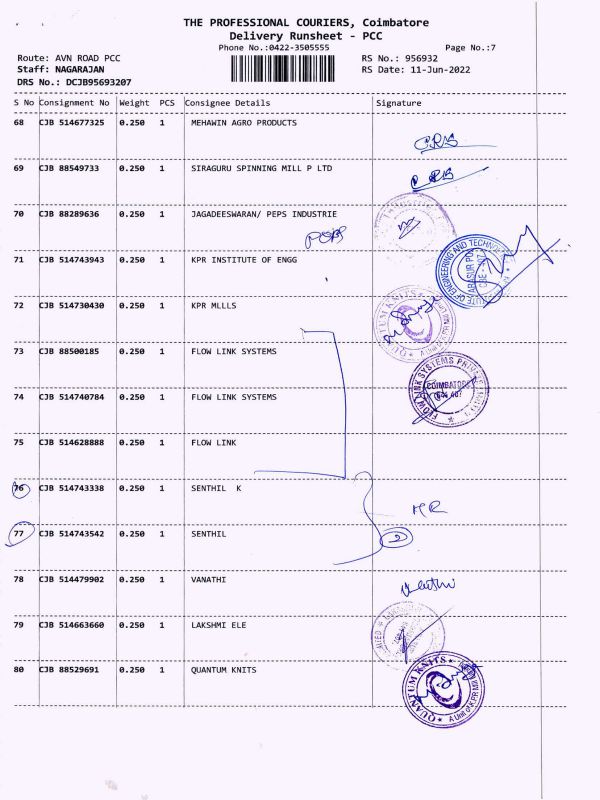 THE PROFESSIONAL COURIERS, Coimbatore
Delivery Runsheet - PCC
Phone No.:0422-3505555
Page No.:7
Route: AVN ROAD PCC
RS No.: 956932
Staff: NAGARAJAN
RS Date: 11-Jun-2022
DRS No.: DCJB95693207
S No Consignment No Weight PCS Consignee Details Signature
68 CJB 514677325 0.250 1 MEHAWIN AGRO PRODUCTS
69 CJB 88549733 0.250 1 SIRAGURU SPINNING MILL P LTD
70 CJB 88289636 0.250 1 JAGADEESWARAN/ PEPS INDUSTRIE
71 CJB 514743943 0.250 1 KPR INSTITUTE OF ENGG
OF ENGINEERING AND
72 CJB 514730430 0.250 1 KPR MLLLS
QUANTUM KNITS
73 CJB 88500185 0.250 1 FLOW LINK SYSTEMS
74 CJB 514740784 0.250 1 FLOW LINK SYSTEMS
FLOW LINK SYSTEMS
COIMBATORE
75 CJB 514628888 0.250 1 FLOW LINK
76 CJB 514743338 0.250 1 SENTHIL K
77 CJB 514743542 0.250 1 SENTHIL
2
78 CJB 514479902 0.250 1 VANATHI
79 CJB 514663660 0.250 1 LAKSHMI ELE
80 CJB 88529691 0.250 1 QUANTUM KNITS
QUANTUM KNITS